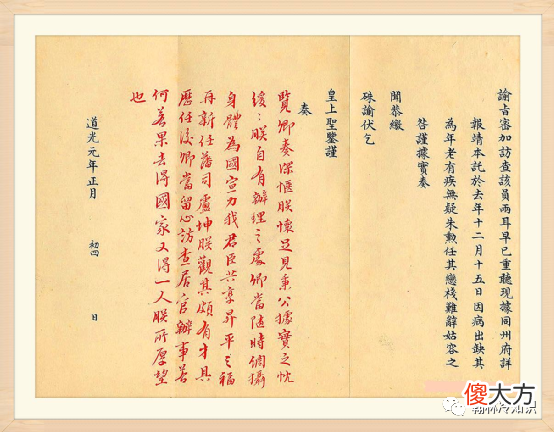 諭旨密加訪查該員兩耳早已重聽現據同州府詳
報請本託於去年十二月十五日因病出缺其
為年老有疾無疑朱勳任其戀棧難辭姑容之
咎謹據實奏
聞恭繳
硃諭伏乞
皇上聖鑒謹
奏
覽卿奏深愜朕懷足見秉公據實之忱
緩緩朕自有辦理之處卿當隨時調攝
身體為國宣力我君臣共享昇平之福
再新任藩司盧坤朕觀其頗有才具
歷任後卿當留心訪查居官辦事若
何若果去得國家又得一人朕所厚望
也
道光元年正月 初四 日
傻大方